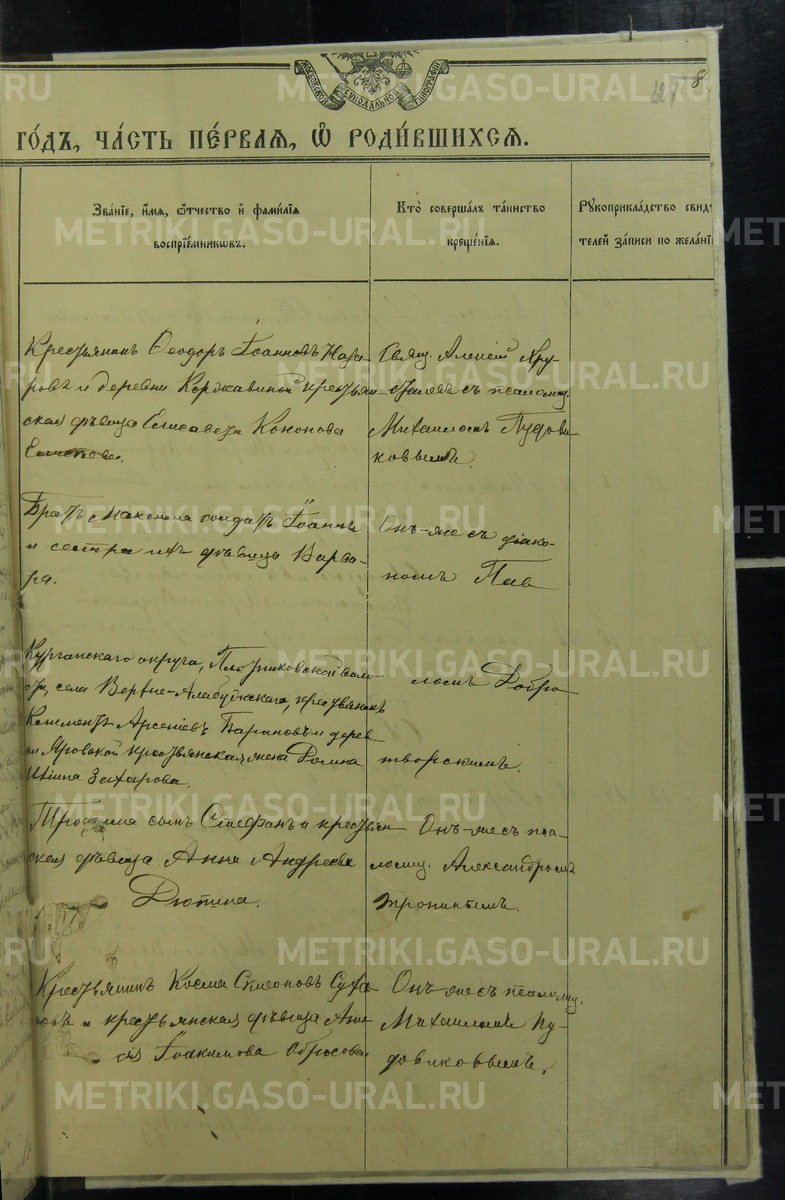 МОСКОВСКОЙ СѴНОДАЛЬНОЙ ТИПОГРАФІИ
8.
го́дъ, ча́сть пе́рваѧ, ѡ҆ роди́вшихсѧ.
Зва́нїе, и҆́мѧ, ѻ҆́тчество и҆ фами́лїѧ
воспрїе́мникѡвъ.
Кто̀ соверша́лъ та́инство
креще́нїѧ.
Рꙋкоприкла́дство свид
телей за́писи по жела́нї
Крестьянинъ Ѳеодоръ Іоанновъ Наза-
ровъ и деревни Коржавиной крестьян-
ская дѣвица Елисавета Кононова
Свящ. Алексій Хру-
сталевъ съ псаломщ.
Михаиломъ Пудови-
ковымъ.
Братъ Максима солдатъ Іоаннъ
и сестра ихъ дѣвица Варва-
ра.
Онъ-же съ діако-
номъ Пав
ломъ Добро
творскимъ.
Курганскаго округа, Плотниковской воло-
сти, села Верхне-Алабугскаго, крестьянинъ
Климентъ Арсеніевъ Барановъ и дерев
ни Яровской крестьянская жена Домна
Захарова.
Трофима сынъ Стефанъ и крестьян
ская дѣвица Анна Андреева
Дютина.
Онъ-же съ пса-
ломщ. Александромъ
Тронинымъ.
Крестьянинъ Косма Симоновъ Суха-
ровъ и крестьянская дѣвица Анн
ія Іоакимова Обросова
Онъ-же съ псаломщ.
Михаиломъ Пу-
довиковымъ.
METRIKI.GASO-URAL.RU